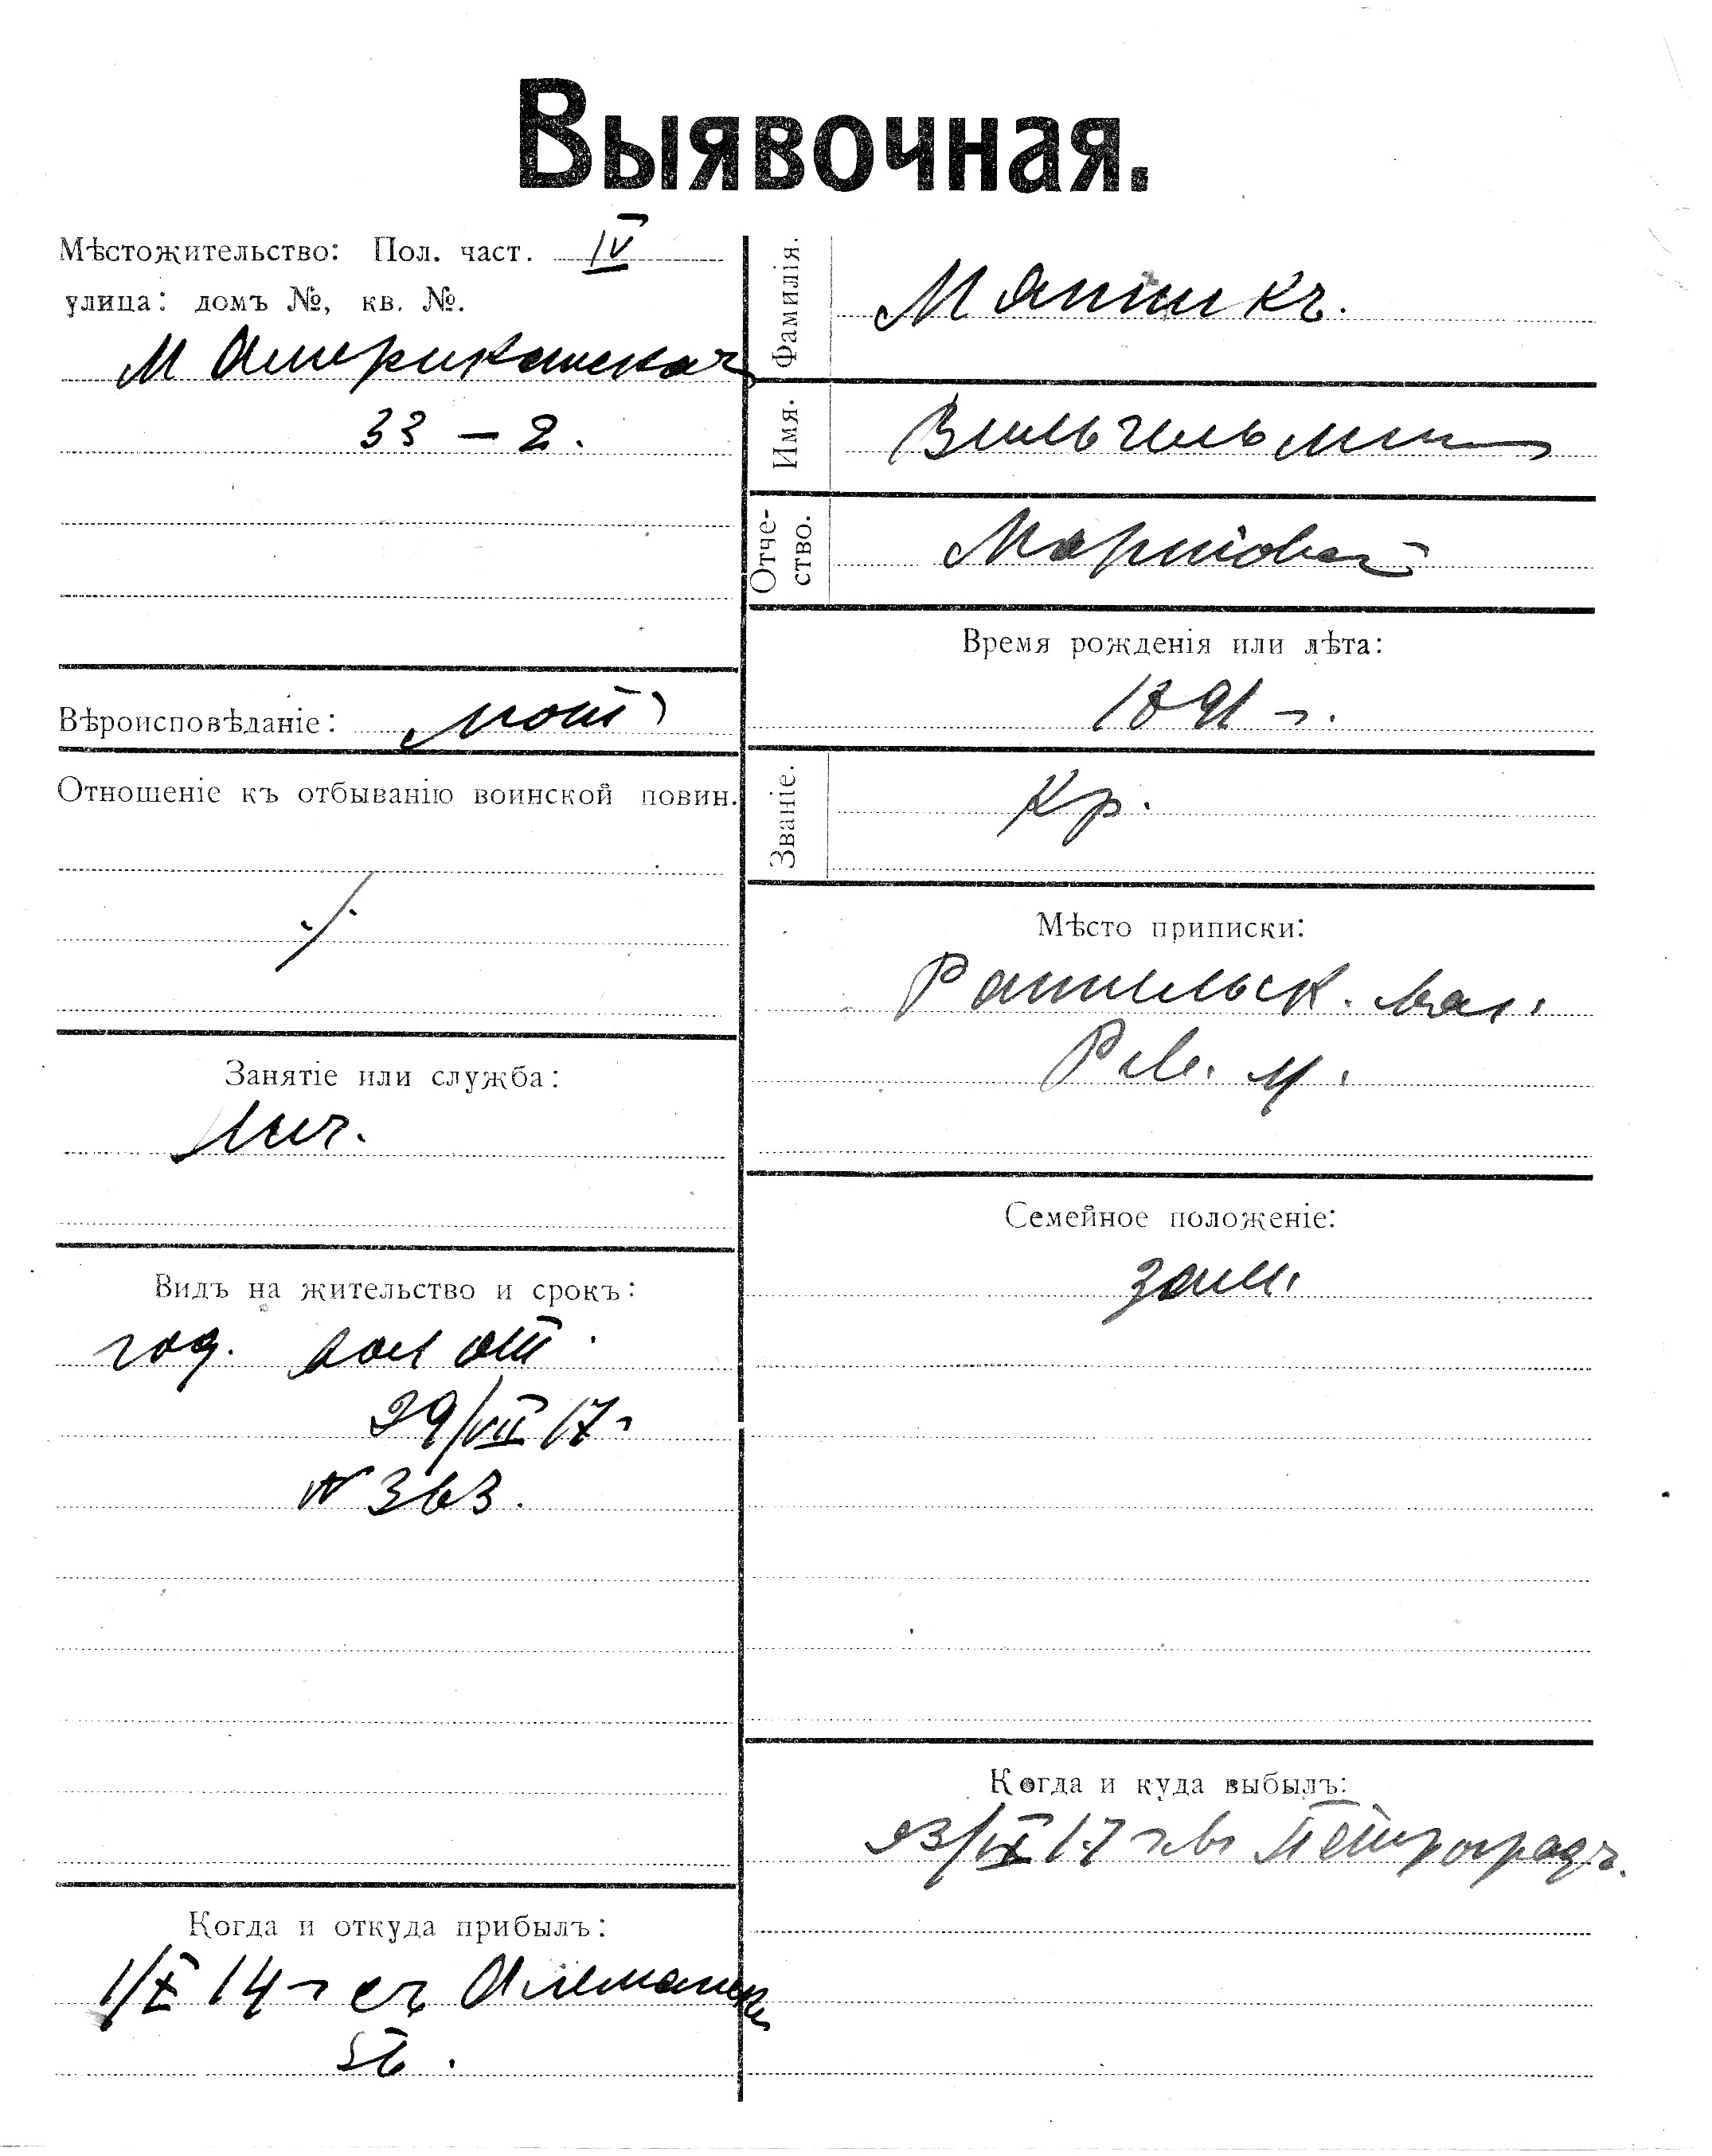 Выявочная.
Мѣстожительство: Пол. част. IV
улица: домъ №, кв. №.
М Американская
33 – 2.
Вѣроисповѣданіе: лют
Отношеніе къ отбыванію воинской повин.
./.
Занятіе или служба:
Видъ на жительство и срокъ:
год. вол от
29/VII 17 г
N 363.
Когда и откуда прибылъ:
1/X 14 г съ
56.
Фамилія.
Имя.
Вильгельмина
Отче-
ство.
Время рожденія или лѣта:
1891 г.
Званіе.
Кр.
Мѣсто приписки:
вол.
Семейное положеніе:
зам.
Когда и куда выбылъ:
23/IX 17 г въ Петроградъ.